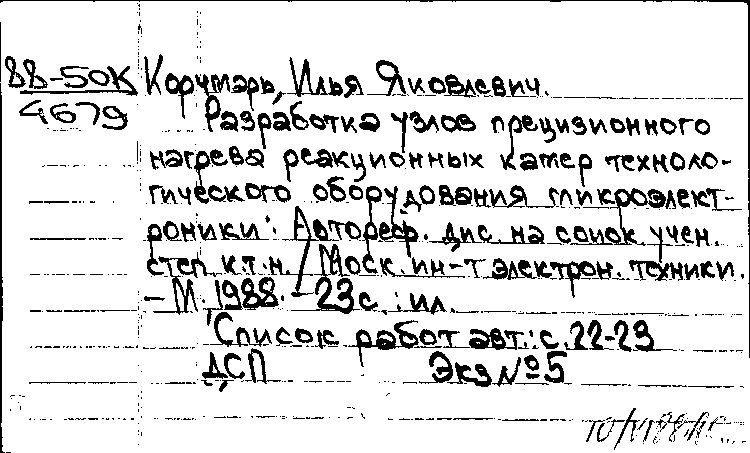 88-50К Корчмарь, Илья Яковлевич.
4679
Разработка узлов прецизионного
нагрева реакционных камер техноло-
гического оборудования микроэлект-
роники: Автореф. дис. на соиск. учен.
степ. к.т.н. / Моск. ин-т электрон. техники.
- М. 1988. - 23 с. : ил.
Список работ авт.: с. 22-23
ДСП Экз № 5